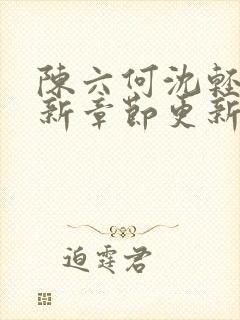 陳六何沈輕
新章節更新
迫霆君